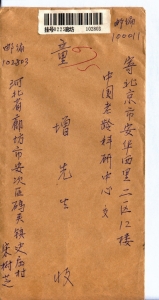 邮编
100011
寄北京市安华西里二区12楼
中国老龄科研中心
童增先生 收
河北省廊坊市安次区码头镇史庄村
朱树芝
邮编
102803
挂号
102803